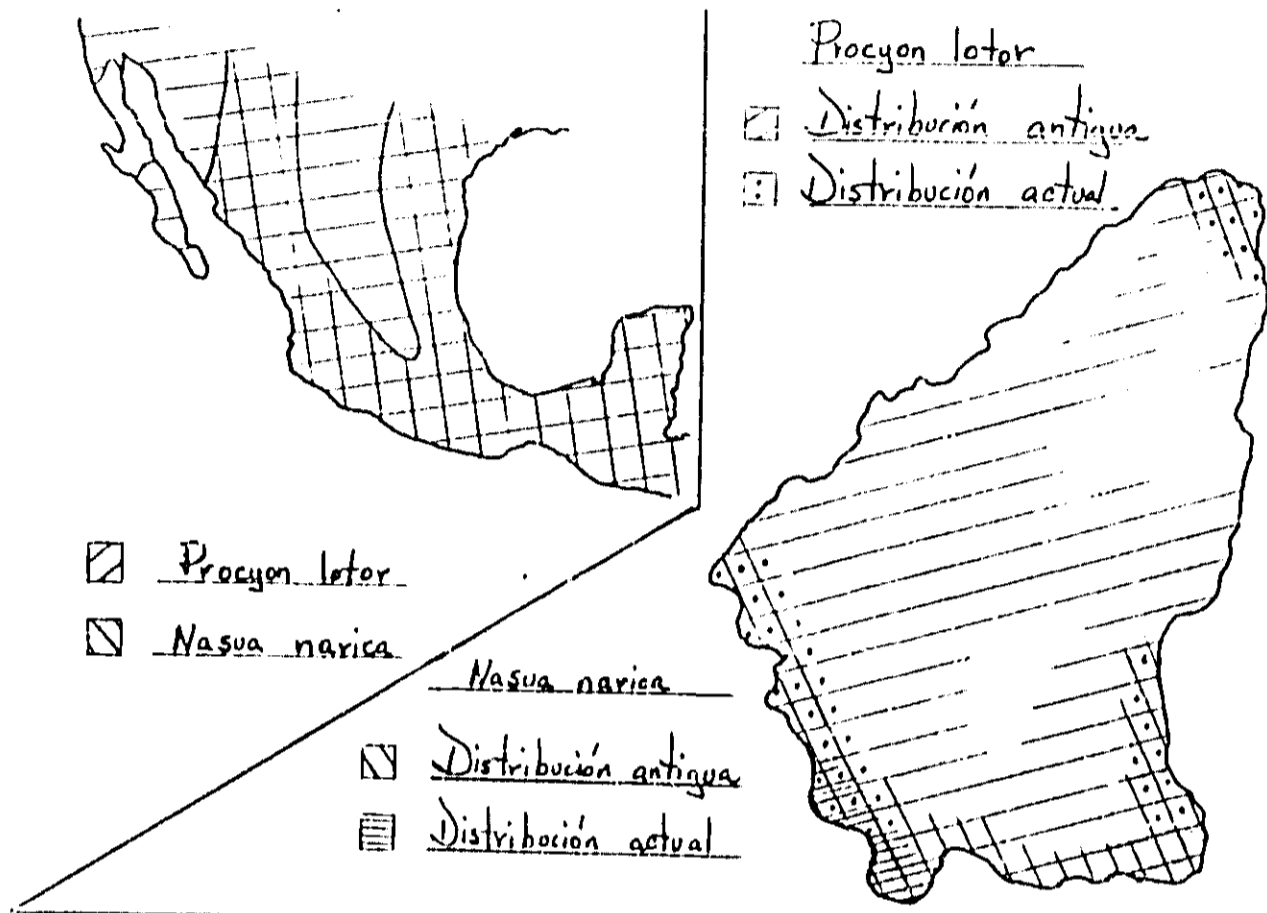 Procyon lotor
Distribución antigua
Distribución actual
Procyon lotor
Nasua narica
Nasua narica
Distribución antigua
Distriboción actual